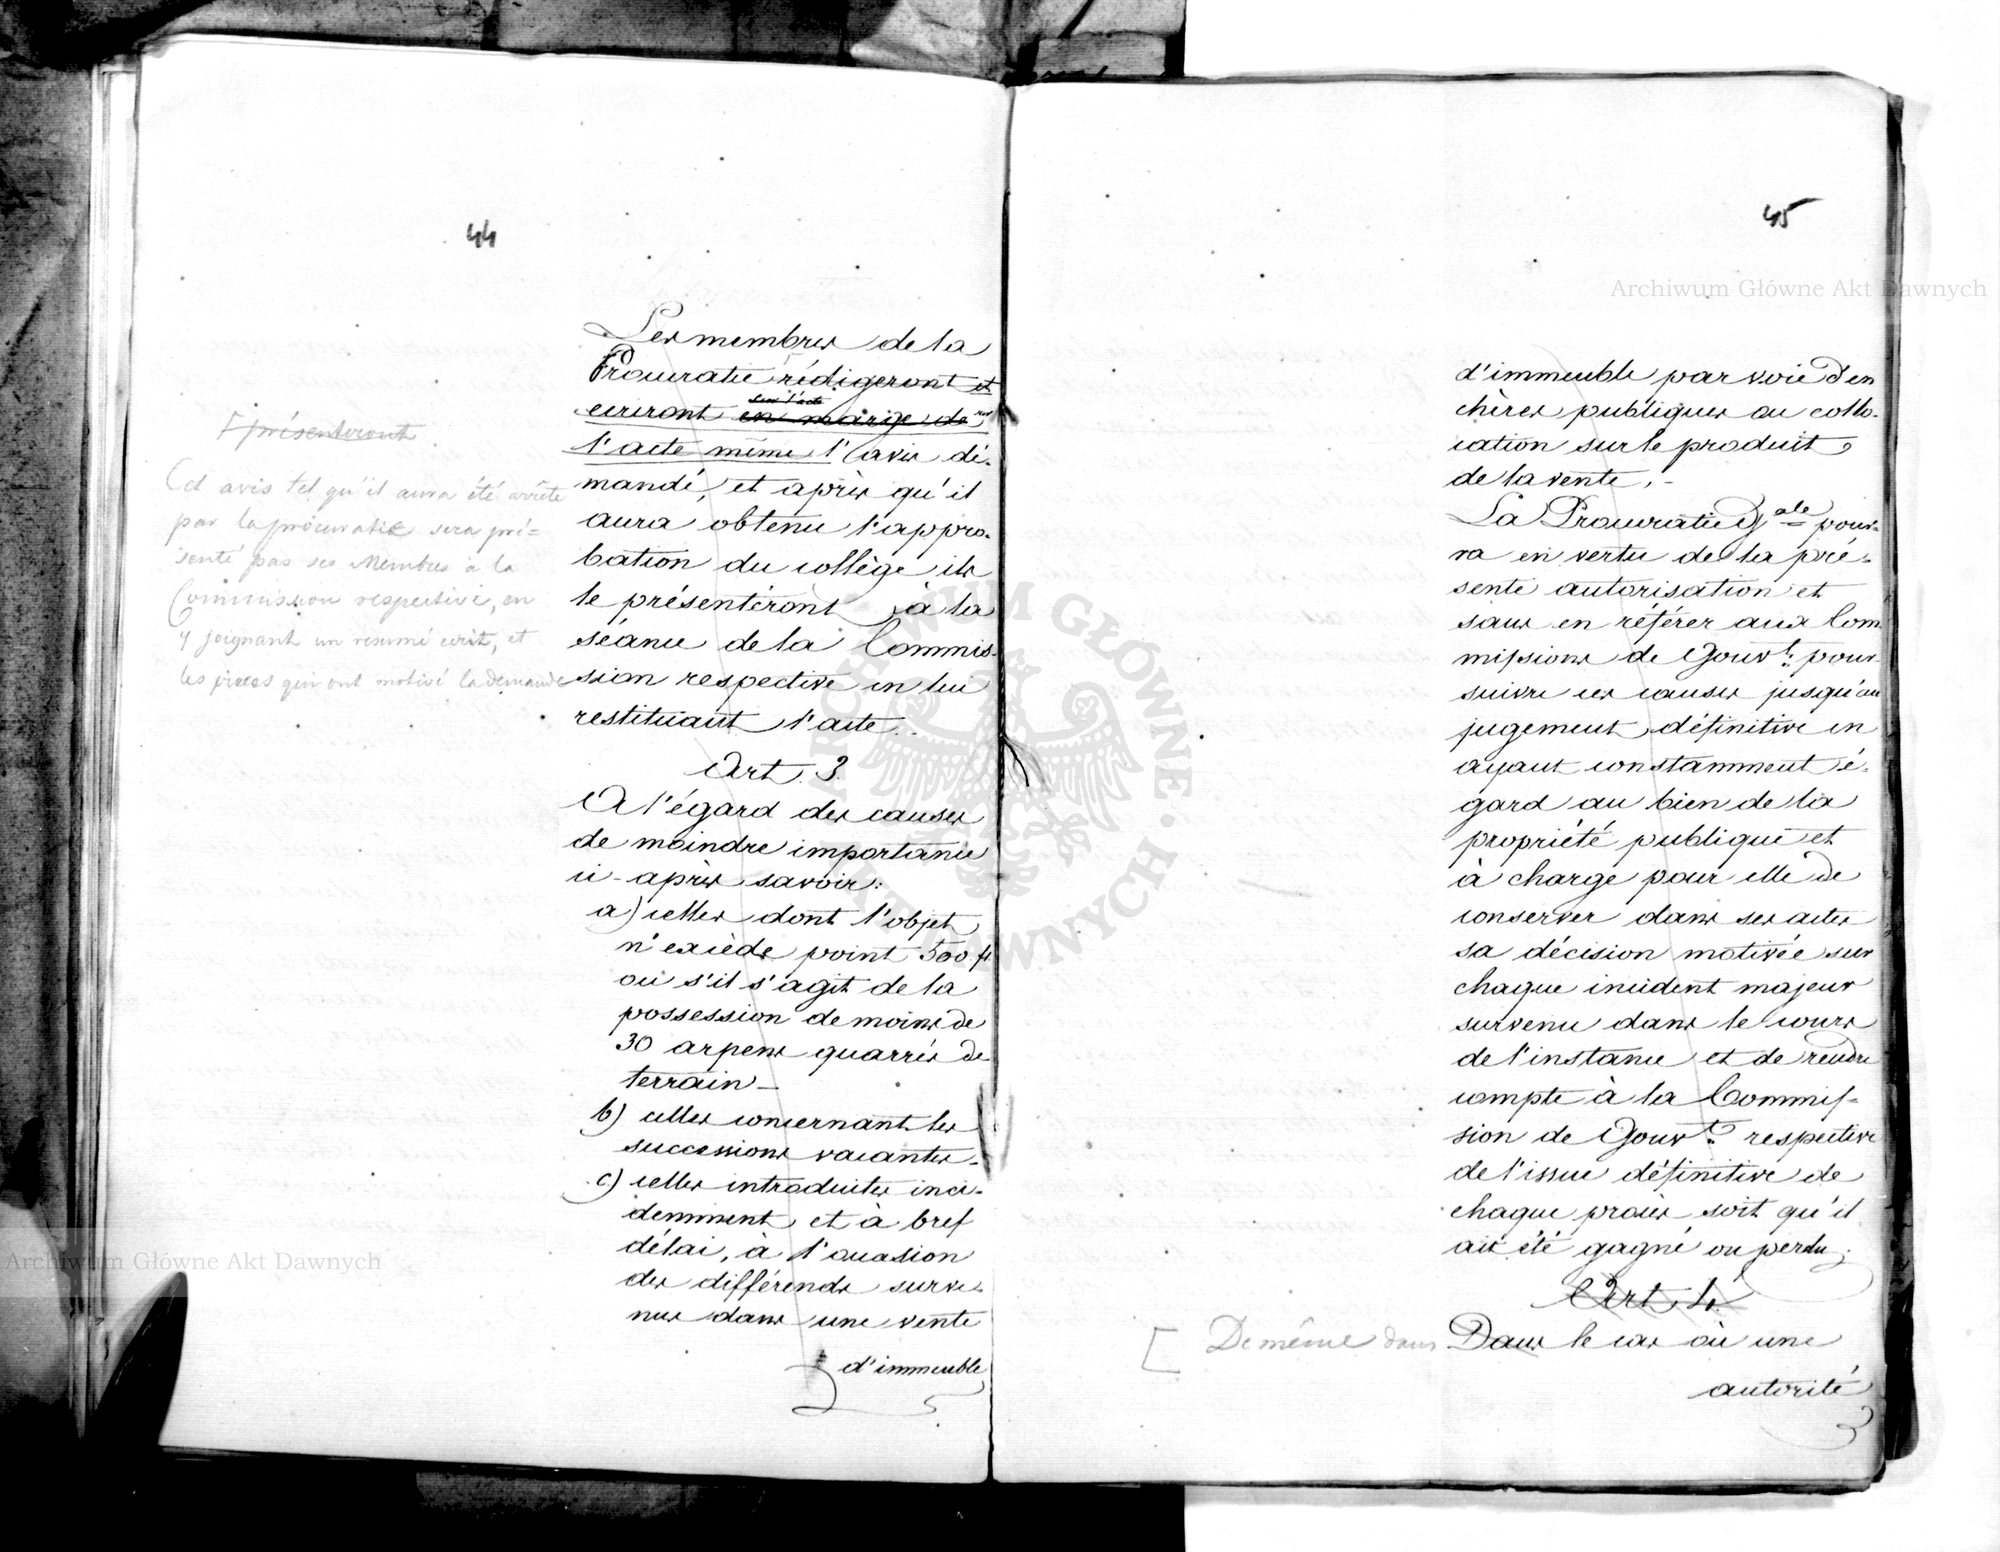 44
Les membres de la
Procuratie rédigeront et
sur l'acte
écriront en marge de sur
l'acte même l'avis dé-
mandé, et après qu'il
aura obtenu l'appro-
bation du collège ils
le présenteront à la
séance de la Commis-
sion respective en lui
restituant l'acte.
Art. 3.
A l'égard des causes
de moindre importance
ci-après savoir:
a) celles dont l'objet
n'excède point 500 fl.
ou s'il s'agit de la
possession de moins de
30 arpens quarrés de
terrain_
b) celles concernant les
successions vacantes_
c) celles introduites inci-
demment et à bref
délai, à l'occasion
des différends surve-
nus dans une vente
d'immeuble
présenteront
Cet avis tel qu'il aura été arrêté
par la procuratie sera pré-
senté par ses Membres à la
Commission respective, en
y joignant un resumé ecrit, et
les pièces qui ont motivé la demande
45
d'immeuble par voie d'en
chères publiques ou collo-
cation sur le produit
de la vente.-
La Procuratie Gale pour-
ra en vertu de la pré-
sente autorisation et
sans en référer aux Com
missions de Gouvt: pour-
suivre ces causes jusqu'au
jugement définitive en
ayant constamment é-
gard au bien de la
propriété publique et
à charge pour elle de
conserver dans ses actes
sa décision motivée sur
chaque incident majeur
survenu dans le cours
de l'instance et de rendre
compte à la Commis-
sion de Gouvt: respective
de l'issue définitive de
chaque procès soit qu'il
ait été gagné ou perdu;
Art. 4.
[ De même dans Dans le cas où une
autorité
Archiwum Główne Akt Dawnych
Archiwum Główne Akt Dawnych
ARCHIWUM GŁÓWNE · AKT DAWNYCH ·